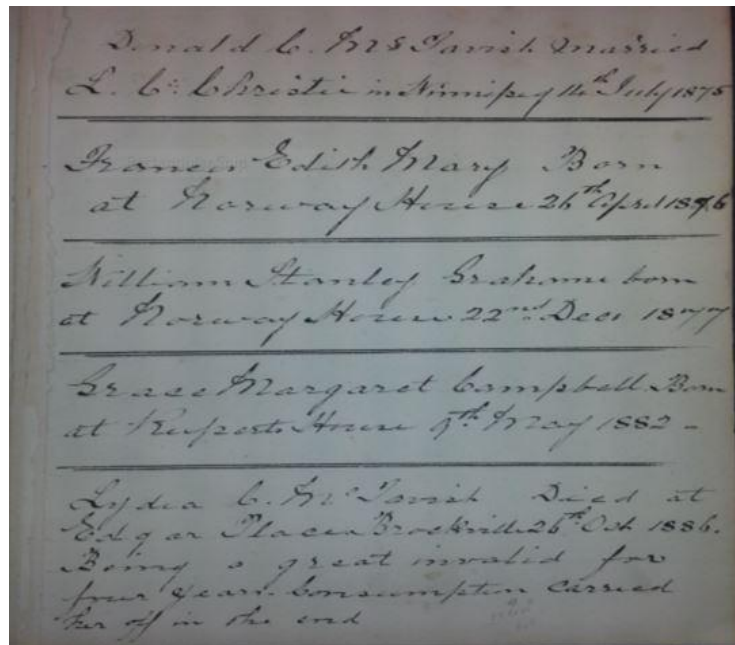 Donald C. McTavish married
L. C. Christie in Winnipeg 14th July 1875
Frances Edith Mary Born
at Norway House 26th April 1876
William Stanley Grahame born
at Norway House 22nd Dec 1877
Grace Margaret Campbell Born
at Ruperts House 9th May 1882 -
Lydia C. McTavish Died at
Edgar Place Brockville 26th Oct 1886.
Being a great invalid for
four years. Consumption carried
her off in the end